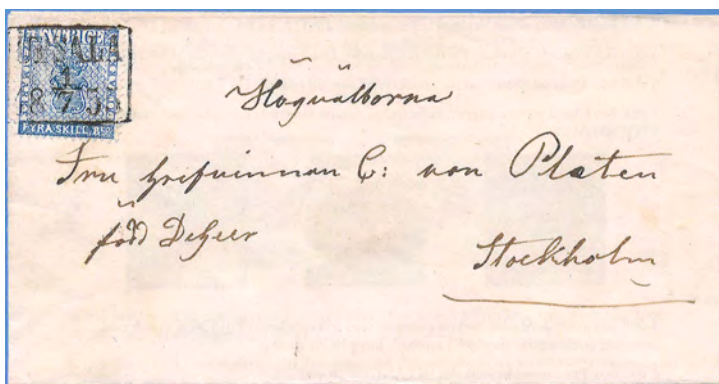 SVERIGE
UPSALA
1
7
FYRA SKILL. BCO
Högvälborna
Fru Grefvinnan C: von Platen
född DeGeer
Stockholm